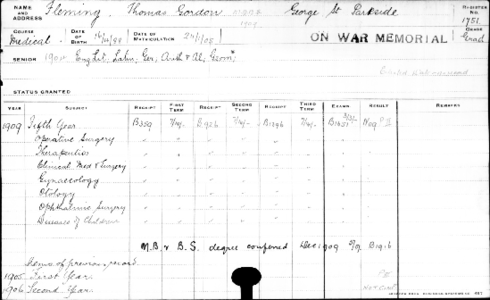 NAME AND ADDRESS Fleming, Thomas Gordon George St Parkside REGISTER No 1751
COURSE Medical DATE OF BIRTH DATE OF MATRICULATION 24/1/08 ON WAR MEMORIAL Grad
SENIOR Eng Lit, Latin, Ger, Arith & Al, Geom
STATUS GRANTED
YEAR SUBJECT RECEIPT FIRST TERM RECEIPT SECOND TERM RECEIPT THIRD TERM EXAMN RESULT REMARKS
1909 Fifth Year B359 B926 B1296 Nov
Operative Surgery " " " " " " " "
Therapeutics " " " " " " " "
Clinical Med & Surgery " " " " " " " "
Gynaecology " " " " " " " "
Otology " " " " " " " "
Ophthalmic Surgery " " " " " " " "
Diseases of Children " " " " " " " "
M.B. & B.S. degree conferred Dec 1909 B1916
Memo of previous record
1905 First Year
1906 Second Year